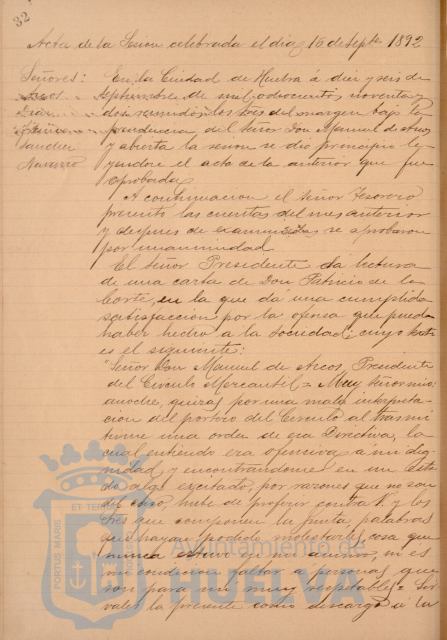 32
Acta de la Sesion celebrada el dia 16 de Septbre 1892
Señores:
Arcos
Diaz
Sanchez
Navarro
En la Ciudad de Huelva á diez y seis de
Septiembre de mil ochocientos noventa y
dos reunidos los Sres del margen bajo la
presidencia del Señor Don Manuel de Arcos
y abierta la sesion se dió principio le-
yendose el acta de la anterior que fué
aprobada.
A continuacion el Señor Tesorero
presentó las cuentas del mes anterior
y despues de examinadas se aprobaron
por unanimidad.
El Señor Presidente da lectura
de una carta de Don Patricio de la
Corte, en la que da una cumplida
satisfaccion por la ofensa que pueda
haber hecho a la Sociedad; cuyo
es el siguiente:
"Señor Don Manuel de Arcos, Presidente
del Circulo Mercantil = Muy Señor mio:
anoche, quizas por una mala interpreta-
cion del portero del Circulo al trasmi-
tirme una orden de esa Directiva, la
cual entiendo era ofensiva a mi dig-
nidad, y encontrandome en un esta-
do algo excitado, por razones que no son
del caso, hube de proferir contra V. y los
que componen la Junta, palabras
que hayan podido molestarle, cosa que
nunca estuvo en mi animo, ni es
mi condicion faltar a personas que
son para mi muy respetables = Sir-
vales la presente como descargo a la
PORTUS MARIS ET TERRAE
Ayuntamiento de
HUELVA